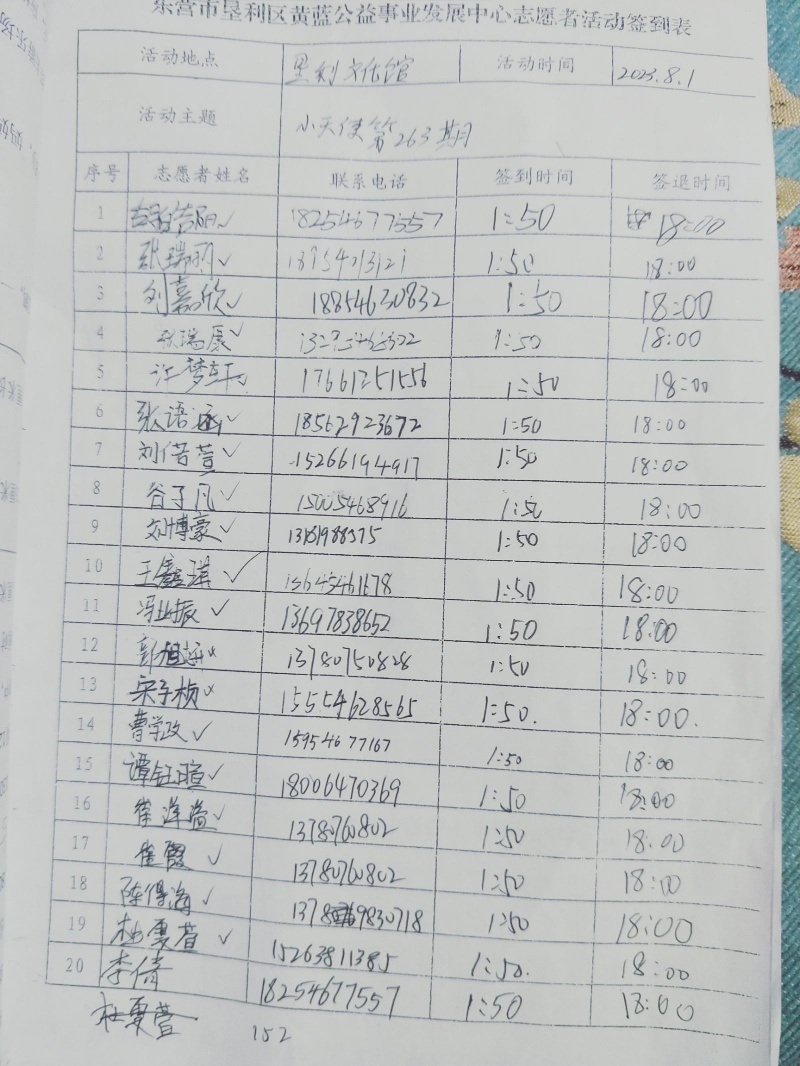 东营市垦利区黄蓝公益事业发展中心志愿者活动签到表
活动地点 垦利文化馆 活动时间 2023.8.1
活动主题 小天使第263期
序号 志愿者姓名 联系电话 签到时间 签退时间
1 18254677557 1:50 18:00
2 张瑞 1:50 18:00
3 刘嘉欣 18854630832 1:50 18:00
4 张瑞晨 1:50 18:00
5 江梦轩 17661251556 1:50 18:00
6 张语涵 18562923672 1:50 18:00
7 刘偌萱 15266194917 1:50 18:00
8 谷子凡 15005468916 1:50 18:00
9 刘博豪 1:50 18:00
10 王鑫琪 13645461678 1:50 18:00
11 冯 振 13697838652 1:50 18:00
12 郭旭涵 13780750828 1:50 18:00
13 宋子桢 15554628565 1:50. 18:00.
14 曹学政 15954677167 1:50 18:00
15 谭钰瑄 18006470369 1:50 18:00
16 13780760802 1:50 18:00
17 崔霞 13780760802 1:50 18:00
18 陈得海 1378 9830718 1:50 18:00
19 杜夏萱 15263811385 1:50. 18:00
20 李倩 18254677557 1:50 18:00
杜夏萱 152